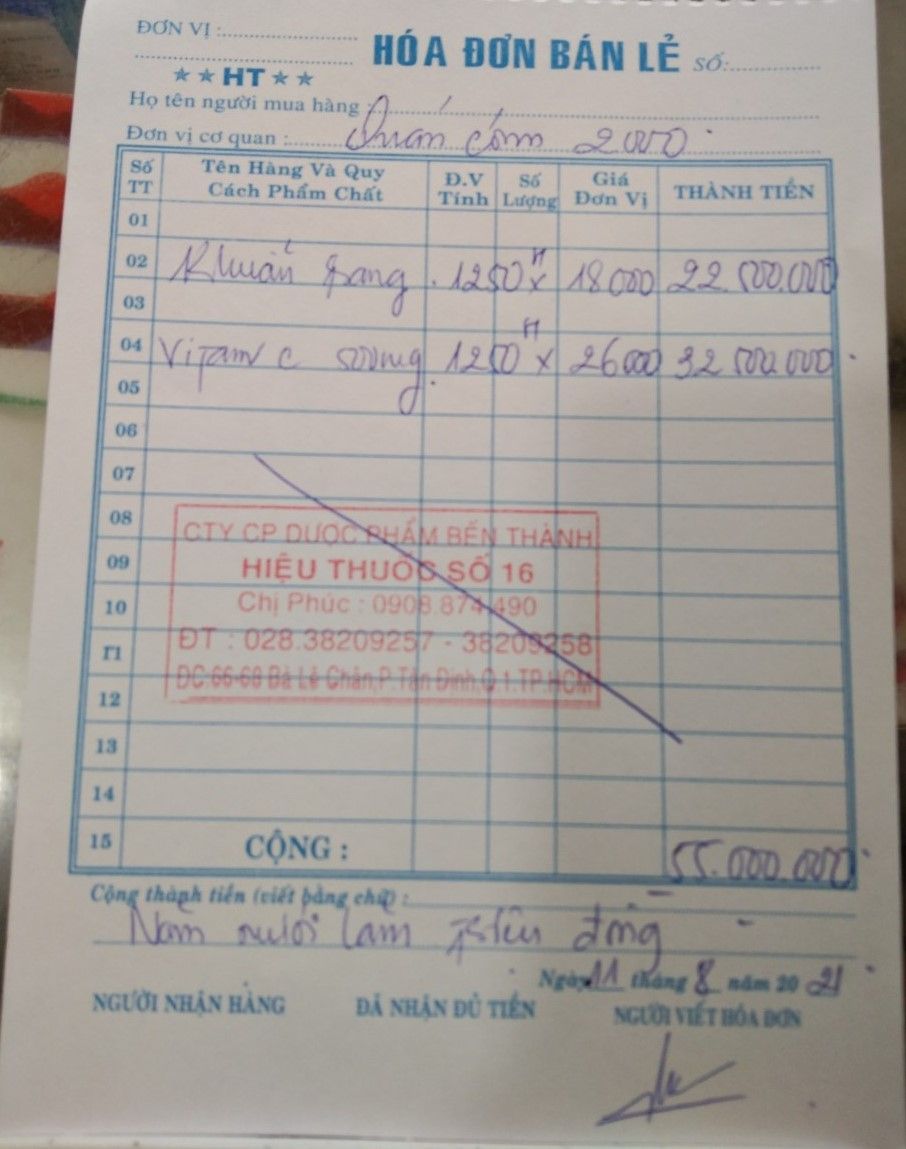 ĐƠN VỊ :
HÓA ĐƠN BÁN LẺ SỐ:
★ ★ HT ★ ★
Họ tên người mua hàng :
Đơn vị cơ quan : Quán cơm 2000
Số TT Tên Hàng Và Quy Cách Phẩm Chất Đ.V Tính Số Lượng Giá Đơn Vị THÀNH TIỀN
01
02 Khuẩn trang 1250 H x 18000 22.500.000
03
04 Vitamv C 500mg 1250 H x 26000 32 500.000
05
06
07
08
09
10
11
12
13
14
15 CỘNG : 55.000.000
CTY CP DƯỢC PHẨM BẾN THÀNH
HIỆU THUỐC SỐ 16
Chị Phúc : 0908.874.490
ĐT : 028.38209257 - 38209258
ĐC:66-68 Bà Lê Chân,P.Tân Định,Q.1.TP.HCM
Cộng thành tiền (viết bằng chữ) :
Năm mươi lăm triệu đồng
Ngày 11 tháng 8 năm 2021
NGƯỜI NHẬN HÀNG ĐÃ NHẬN ĐỦ TIỀN NGƯỜI VIẾT HÓA ĐƠN